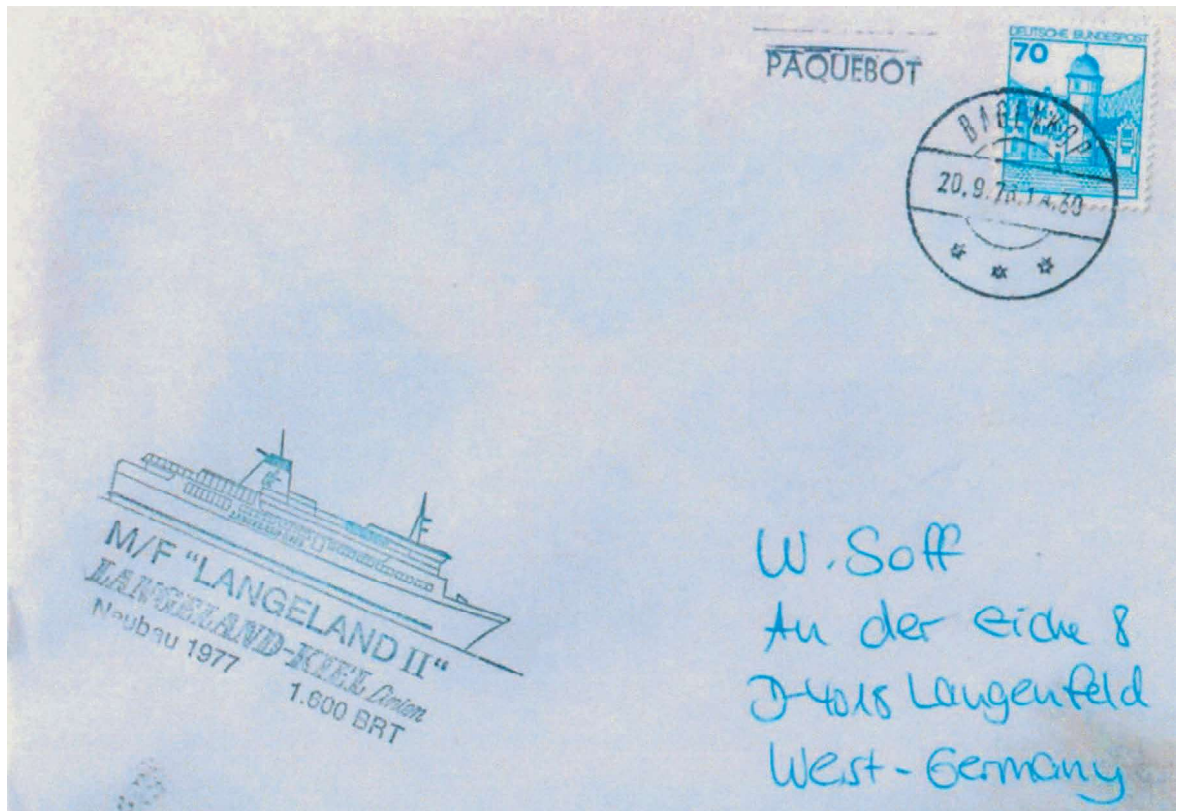 PAQUEBOT
DEUTSCHE BUNDESPOST
70
BAGENKOP
M/F "LANGELAND II"
LANGELAND-KIEL Linien
Neubau 1977 1.600 BRT
W. Soff
An der Eiche 8
D-4018 Langenfeld
West-Germany